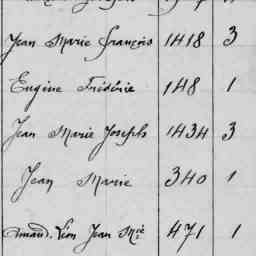 Jean Marie françois 1418 3
Eugène Frédéric 148 1
Jean Marie Joseph 1434 3
Jean Marie 340 1
Amand. Léon Jean Mie 471 1